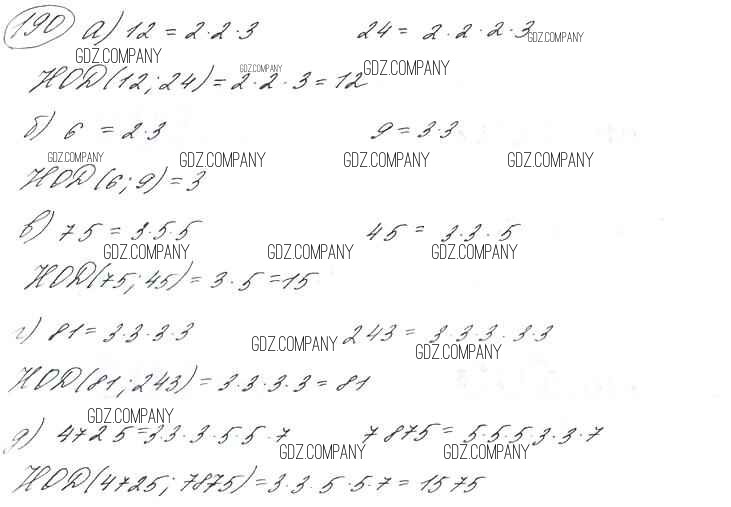 190 а) 12 = 2·2·3 24 = 2·2·2·3 GDZ.COMPANY
GDZ.COMPANY GDZ.COMPANY GDZ.COMPANY
НОД(12;24) = 2·2·3 = 12
б) 6 = 2·3 9 = 3·3
GDZ.COMPANY GDZ.COMPANY GDZ.COMPANY GDZ.COMPANY
НОД(6;9) = 3
в) 75 = 3·5·5 45 = 3·3·5
GDZ.COMPANY GDZ.COMPANY GDZ.COMPANY
НОД(75;45) = 3·5 = 15
г) 81 = 3·3·3·3 243 = 3·3·3·3·3
GDZ.COMPANY GDZ.COMPANY
НОД(81;243) = 3·3·3·3 = 81
GDZ.COMPANY
д) 4725 = 3·3·3·5·5·7 7875 = 5·5·5·3·3·7
GDZ.COMPANY GDZ.COMPANY
НОД(4725;7875) = 3·3·5·5·7 = 1575